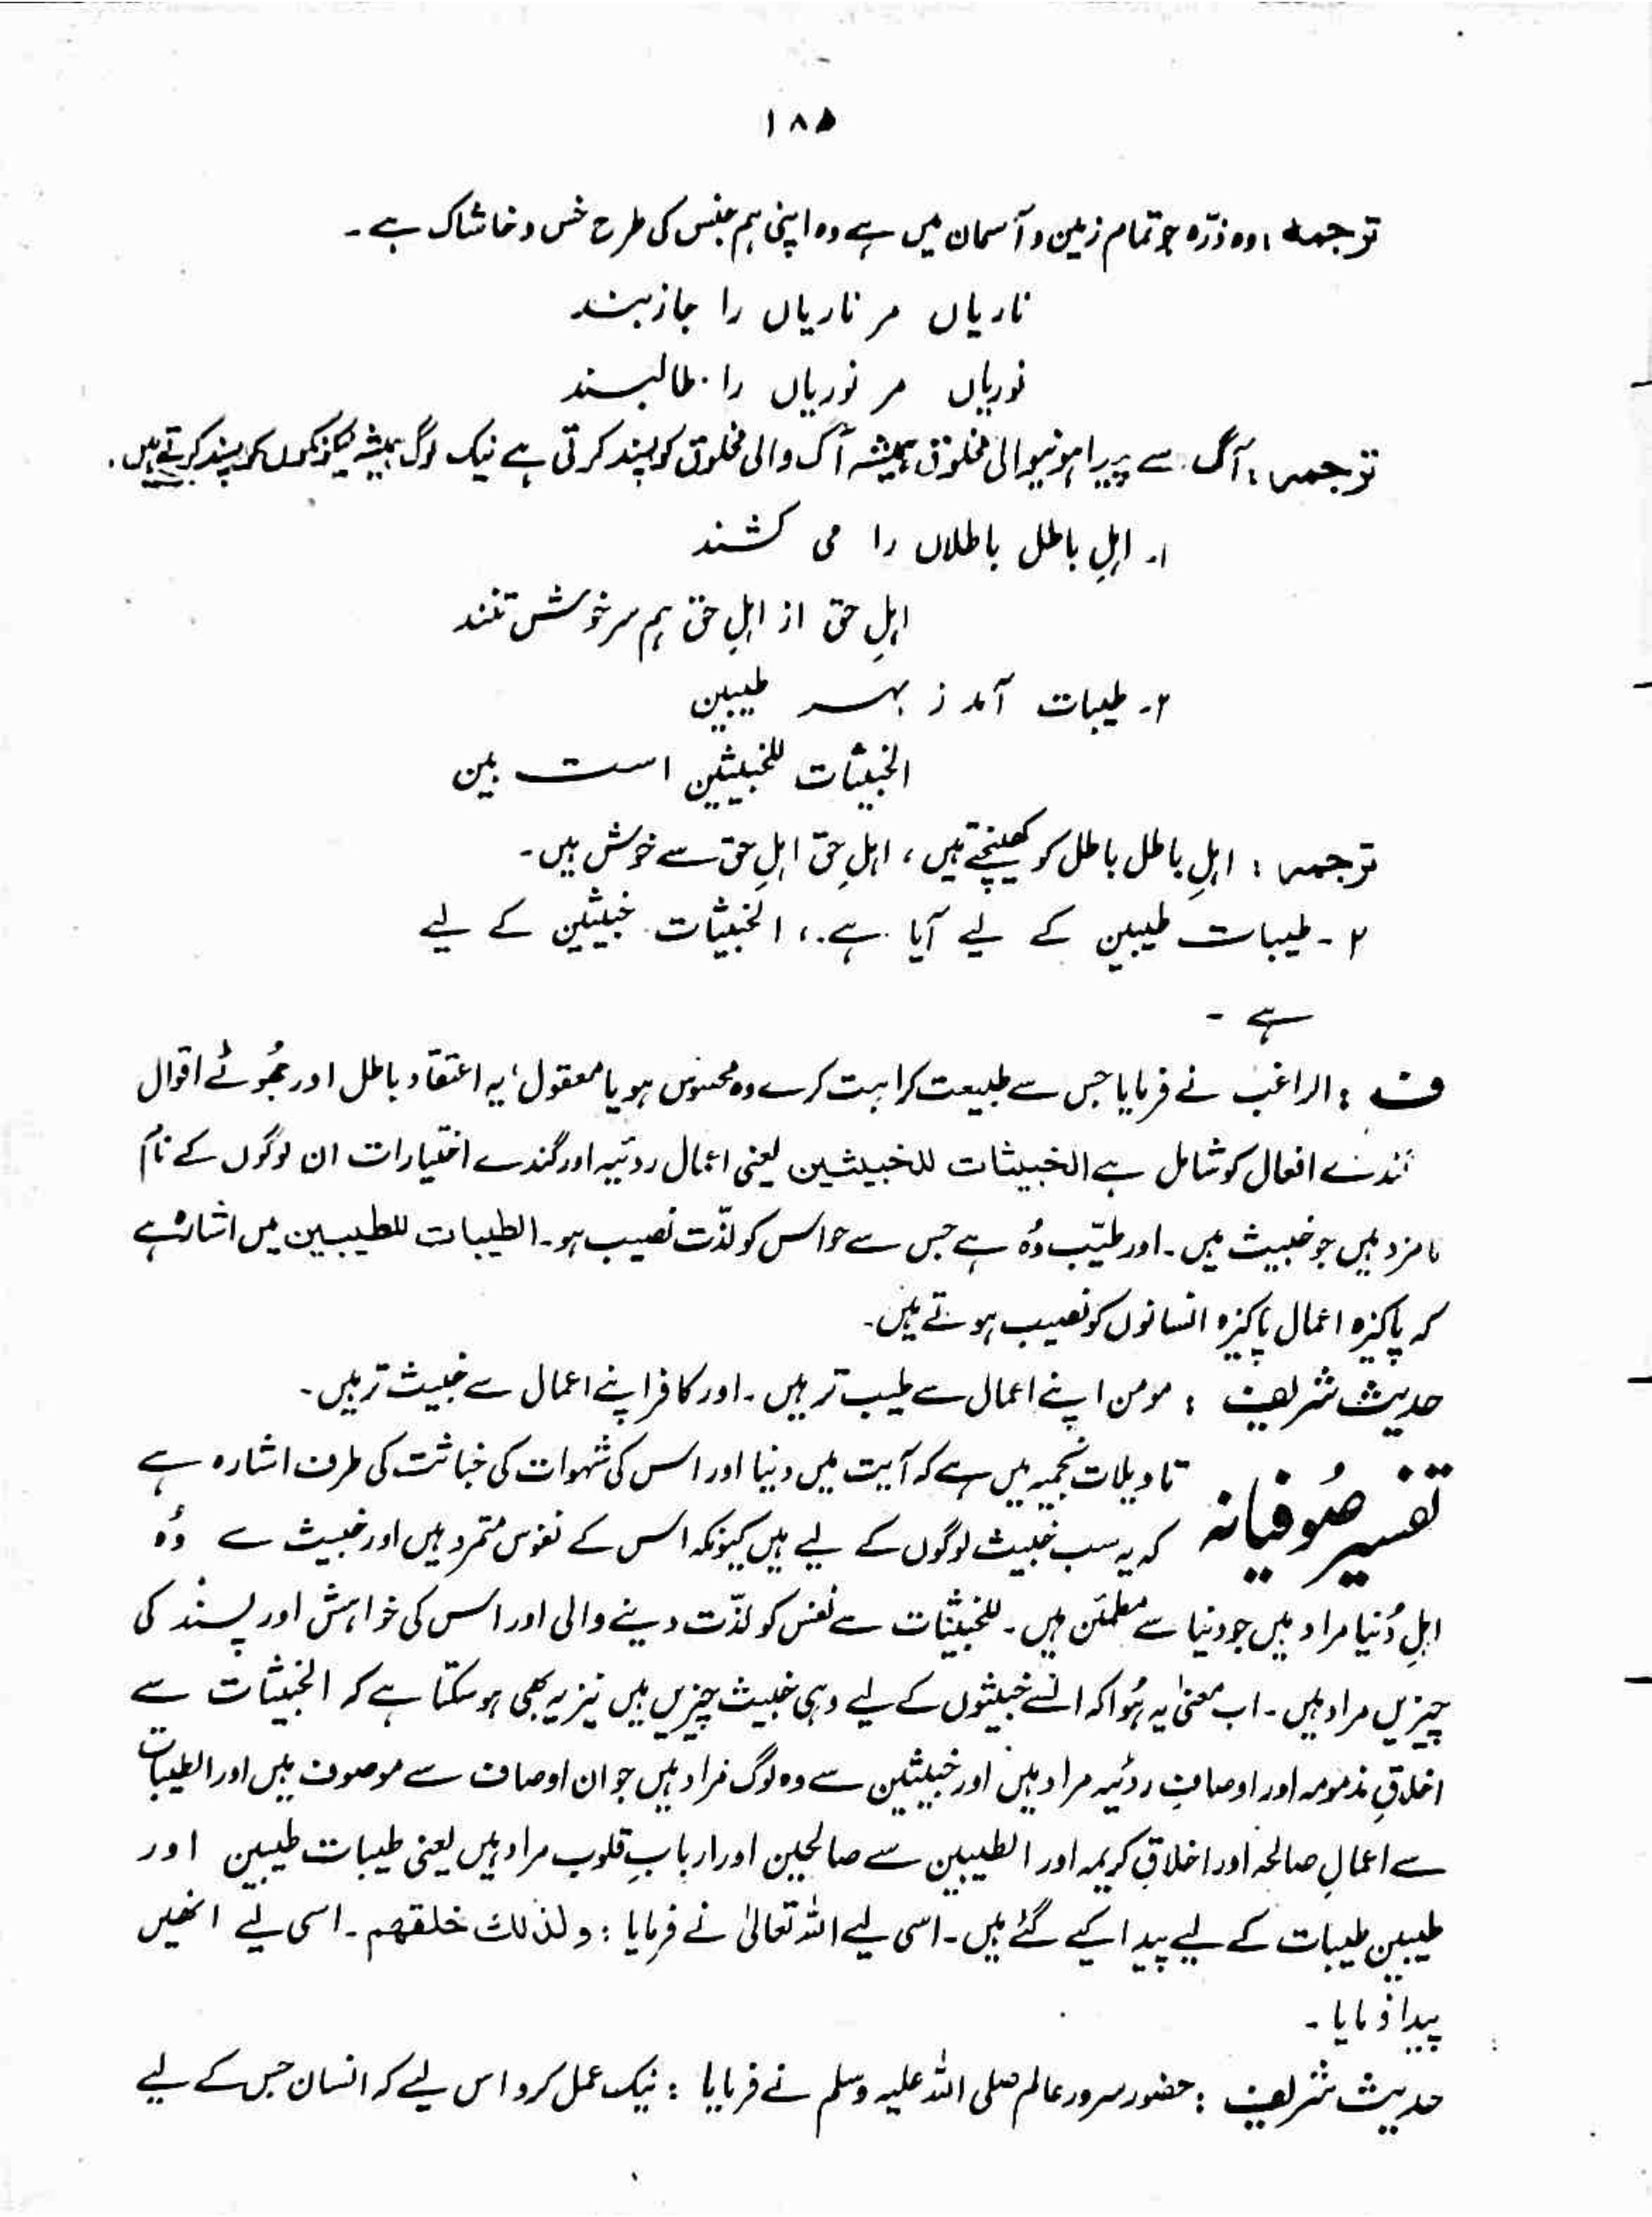 ۱۸۵
ترجمہ : وہ ذرّہ جو تمام زمین و آسمان میں ہے وہ اپنی ہم جنس کی طرح خس و خاشاک ہے ۔
ناریاں مر ناریاں را جاذبند
نوریاں مر نوریاں را طالبند
ترجمہ : آگ سے پیدا ہونیوالی مخلوق ہمیشہ آگ والی مخلوق کو پسند کرتی ہے نیک لوگ ہمیشہ نیکوں کو پسند کرتے ہیں ۔
۱۔ اہلِ باطل باطلاں را می کشند
اہلِ حق از اہلِ حق ہم سرخوش تنند
۲۔ طیبات آمد ز بہر طیبین
الخبیثات للخبیثین است بین
ترجمہ : اہلِ باطل باطل کو کھینچتے ہیں ، اہلِ حق اہلِ حق سے خوش ہیں ۔
۲ ۔ طیبات طیبین کے لیے آیا ہے ، الخبیثات خبیثین کے لیے
ہے ۔
ف : الراغب نے فرمایا جس سے طبیعت کراہت کرے وہ محسوس ہو یا معقول ، یہ اعتقاد باطل اور جھُوٹے اقوال
گندے افعال کو شامل ہے الخبیثات للخبیثین یعنی اعمال ردئیہ اور گندے اختیارات ان لوگوں کے نام
نامزد ہیں جو خبیث ہیں ۔ اور طیّب وُہ ہے جس سے حواس کو لذّت نصیب ہو ۔ الطیبات للطیبین میں اشارہ ہے
کہ پاکیزہ اعمال پاکیزہ انسانوں کو نصیب ہوتے ہیں ۔
حدیث شریف : مومن اپنے اعمال سے طیب تر ہیں ۔ اور کافر اپنے اعمال سے خبیث تر ہیں ۔
تفسیر صُوفیانہ تاویلات نجمیہ میں ہے کہ آیت میں دنیا اور اس کی شہوات کی خباثت کی طرف اشارہ ہے
کہ یہ سب خبیث لوگوں کے لیے ہیں کیونکہ اس کے نفوس متمرد ہیں اور خبیث سے وُہ
اہلِ دُنیا مراد ہیں جو دنیا سے مطمئن ہیں ۔ للخبیثات سے نفس کو لذّت دینے والی اور اس کی خواہش اور پسند کی
چیزیں مراد ہیں ۔ اب معنیٰ یہ ہُوا کہ ایسے خبیثوں کے لیے وہی خبیث چیزیں ہیں نیز یہ بھی ہو سکتا ہے کہ الخبیثات سے
اخلاقِ مذمومہ اور اوصافِ ردئیہ مراد ہیں اور خبیثین سے وہ لوگ مراد ہیں جو ان اوصاف سے موصوف ہیں اور الطیبات
سے اعمالِ صالحہ اور اخلاقِ کریمہ اور الطیبین سے صالحین اور اربابِ قلوب مراد ہیں یعنی طیبات طیبین اور
طیبین طیبات کے لیے پیدا کیے گئے ہیں ۔ اسی لیے اللہ تعالیٰ نے فرمایا : ولذلك خلقهم ۔ اسی لیے انھیں
پیدا فرمایا ۔
حدیث شریف : حضور سرور عالم صلی اللہ علیہ وسلم نے فرمایا : نیک عمل کرو اس لیے کہ انسان جس کے لیے